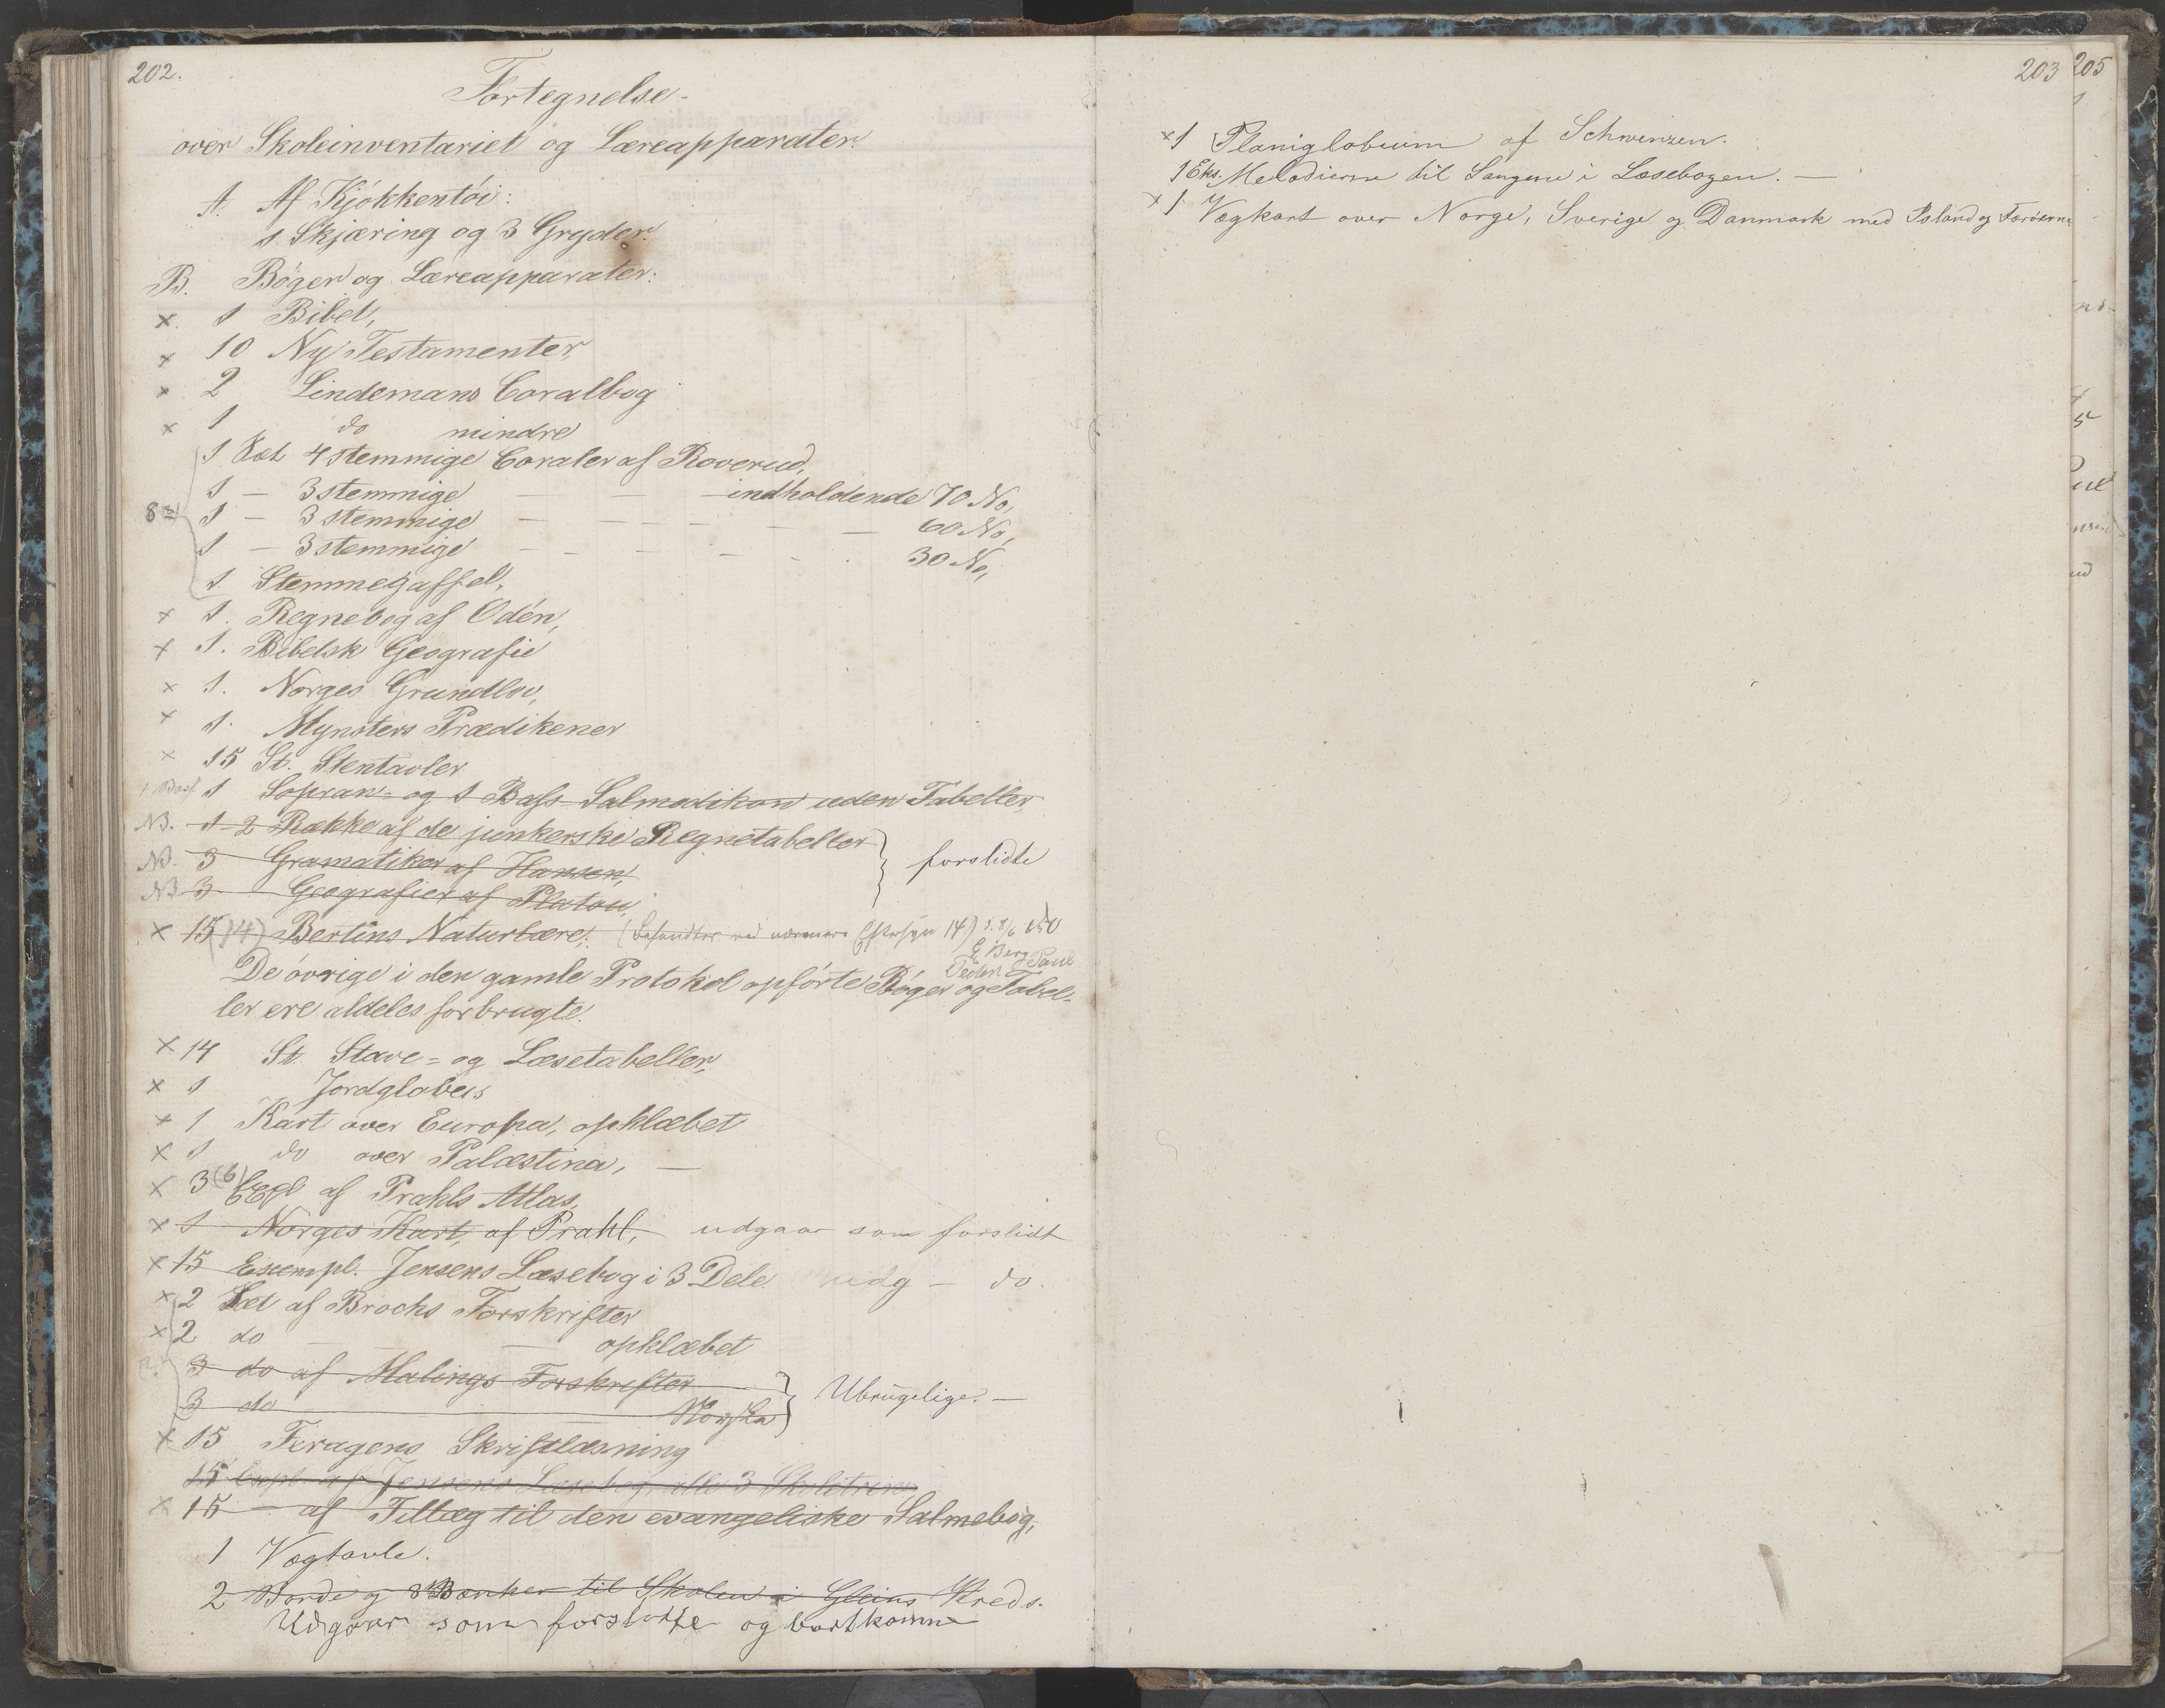 202.
Fortegnelse
over Skoleinventariet og Læreapparater.
A. Af Kjøkkentøi:
1 Skjæring og 3 Gryder.
B. Bøger og Læreapparater:
x 1 Bibel,
x 10 Ny Testamenter,
x 2 Lindemans Coralbog
x 1 do mindre
1 Sæt 4stemmige Coraler af Roverud,
1 — 3stemmige — — — indholdende 70 No,
8 1 — 3stemmige — — — — — 60 No,
1 — 3stemmige — — — — — 30 No,
1 Stemmegaffel,
x 1. Regnebog af Odén,
x 1. Bibelsk Geografie
x 1. Norges Grundlov,
x 1. Mynsters Prædikener
x 15 St. Stentavler
1 Bass 1 Sopran= og 1 Bass Salmodikon uden Tabeller,
NB. 1-2 Række af de junkerske Regnetabeller
NB. 3 Gramatiker af Hansen, } forslidte
NB 3 Geografier af Platou,
x 15 (14) Berlins Naturlære; (befandtes ved nærmere Eftersyn 14)
E Berg
Peder Paul
De øvrige i den gamle Protokol opførte Bøger og Tabel-
ler ere aldeles forbrugte.
x 14 St. Stave= og Læsetabeller,
x 1 Jordglobus
x 1 Kart over Europa, opklæbet
x 1 do over Palæstina, —
x 3 (6) Expl af Prahls Atlas,
x 1 Norges Kart, af Prahl, udgaar som forslidt
x 15 Exempl. Jensens Læsebog i 3 Dele udg — do.
x 2 Sæt af Brochs Forskrifter
x 2 do — — opklæbet
3 do af Malings Forskrifter
3 do Norske } Ubrugelige. —
x 15 Feragens Skriftlæsning
15 Expl. af Jensens Læsebog, alle 3 Skoletrin,
x 15 — af Tillæg til den evangeliske Salmebog,
1 Vægtavle.
2 Borde og 8 Bænker til Skolen i Gleins Kreds.
Udgaar som forslidte og bortkomne
203
205
x 1 Planiglobium af Schwenzen.
1 Eks. Melodierne til Sangene i Læsebogen. —
x 1 Vægkart over Norge, Sverige og Danmark med Island og Færøerne